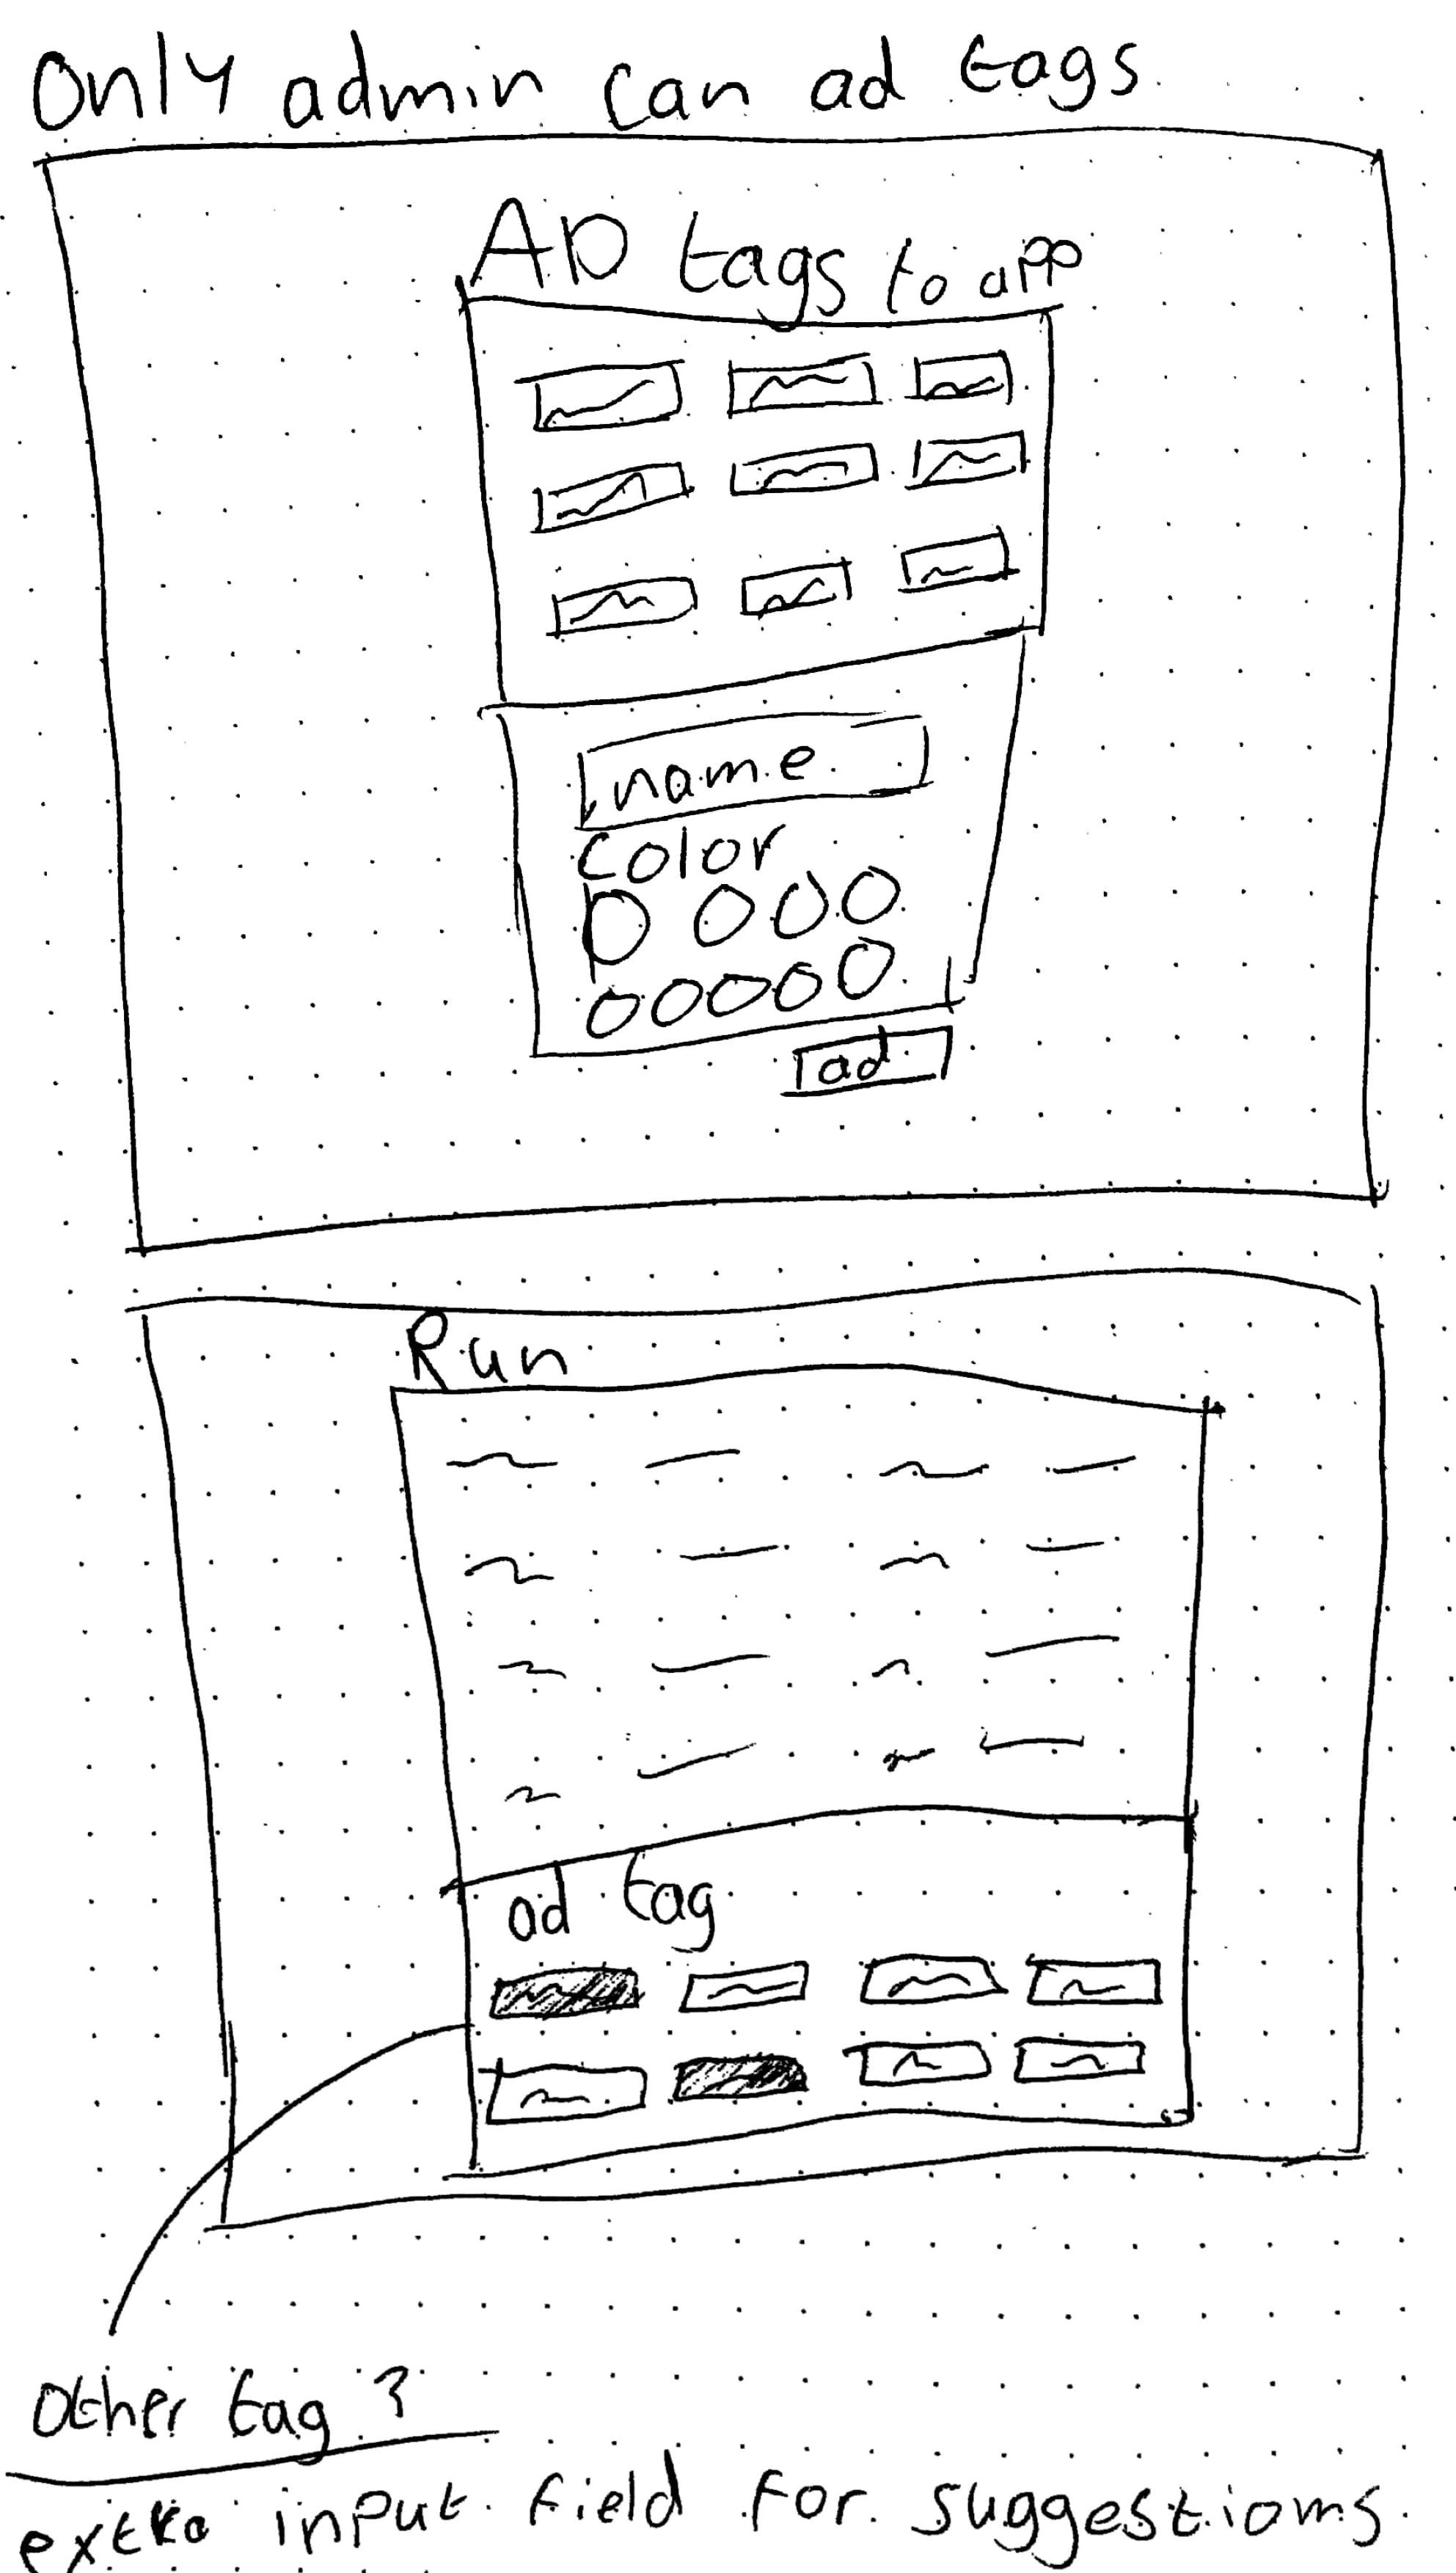 Only admin can ad tags
AD tags to app
name
Color
ad
Run
ad tag
Other tag?
extra input field for suggestions.